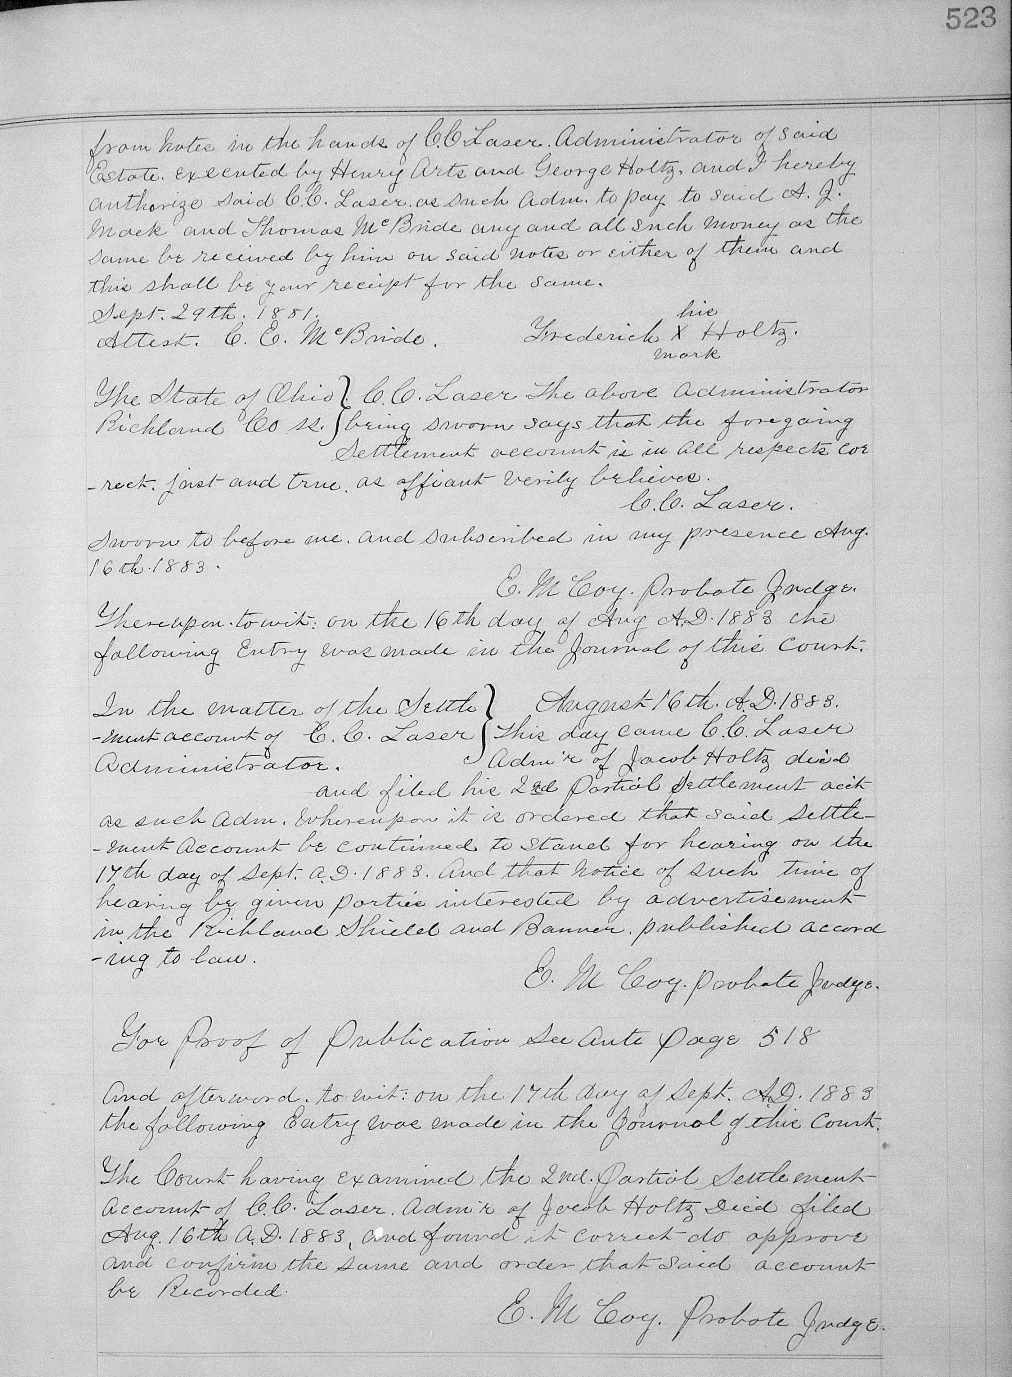 523
from notes in the hands of C.C. Laser. Administrator of said
Estate. executed by Henry Arts and George Holtz, and I hereby
authorize said C.C. Laser. as such Adm. to pay to said A. J.
Mack and Thomas McBride any and all such money as the
same be received by him on said notes or either of them and
this shall be your receipt for the same.
Sept. 29th. 1881.
his
Attest. C. E. McBride. Frederick X Holtz.
mark
The State of Ohio } C.C. Laser the above administrator
Richland Co ss. } being sworn says that the foregoing
Settlement account is in all respects cor
-rect. just and true. as affiant verily believes.
C.C. Laser.
Sworn to before me. and subscribed in my presence Aug.
16th. 1883.
E. McCoy. Probate Judge.
Thereupon. towit: on the 16th day of Aug A.D. 1883 the
following Entry was made in the Journal of this Court.
In the matter of the Settle } August 16th. A.D. 1883.
-ment account of C. C. Laser } This day came C.C. Laser
Administrator. Adm'r of Jacob Holtz dec'd
and filed his 2nd Partial Settlement acct
as such Adm. Whereupon it is ordered that said Settle-
-ment Account be continued to stand for hearing on the
17th day of Sept. A.D. 1883. And that Notice of such time of
hearing be given parties interested by advertisement
in the Richland Shield and Banner. published accord
-ing to law.
E. McCoy. Probate Judge.
For Proof of Publication See Ante Page 518
And afterword. to wit: on the 17th day of Sept. A.D. 1883
the following Entry was made in the Journal of this Court.
The Court having examined the 2nd. Partial Settlement
Account of C.C. Laser. Adm'r of Jacob Holtz Decd filed
Aug. 16th A.D. 1883, and found it correct do approve
and confirm the same and order that said account
be Recorded.
E. McCoy. Probate Judge.